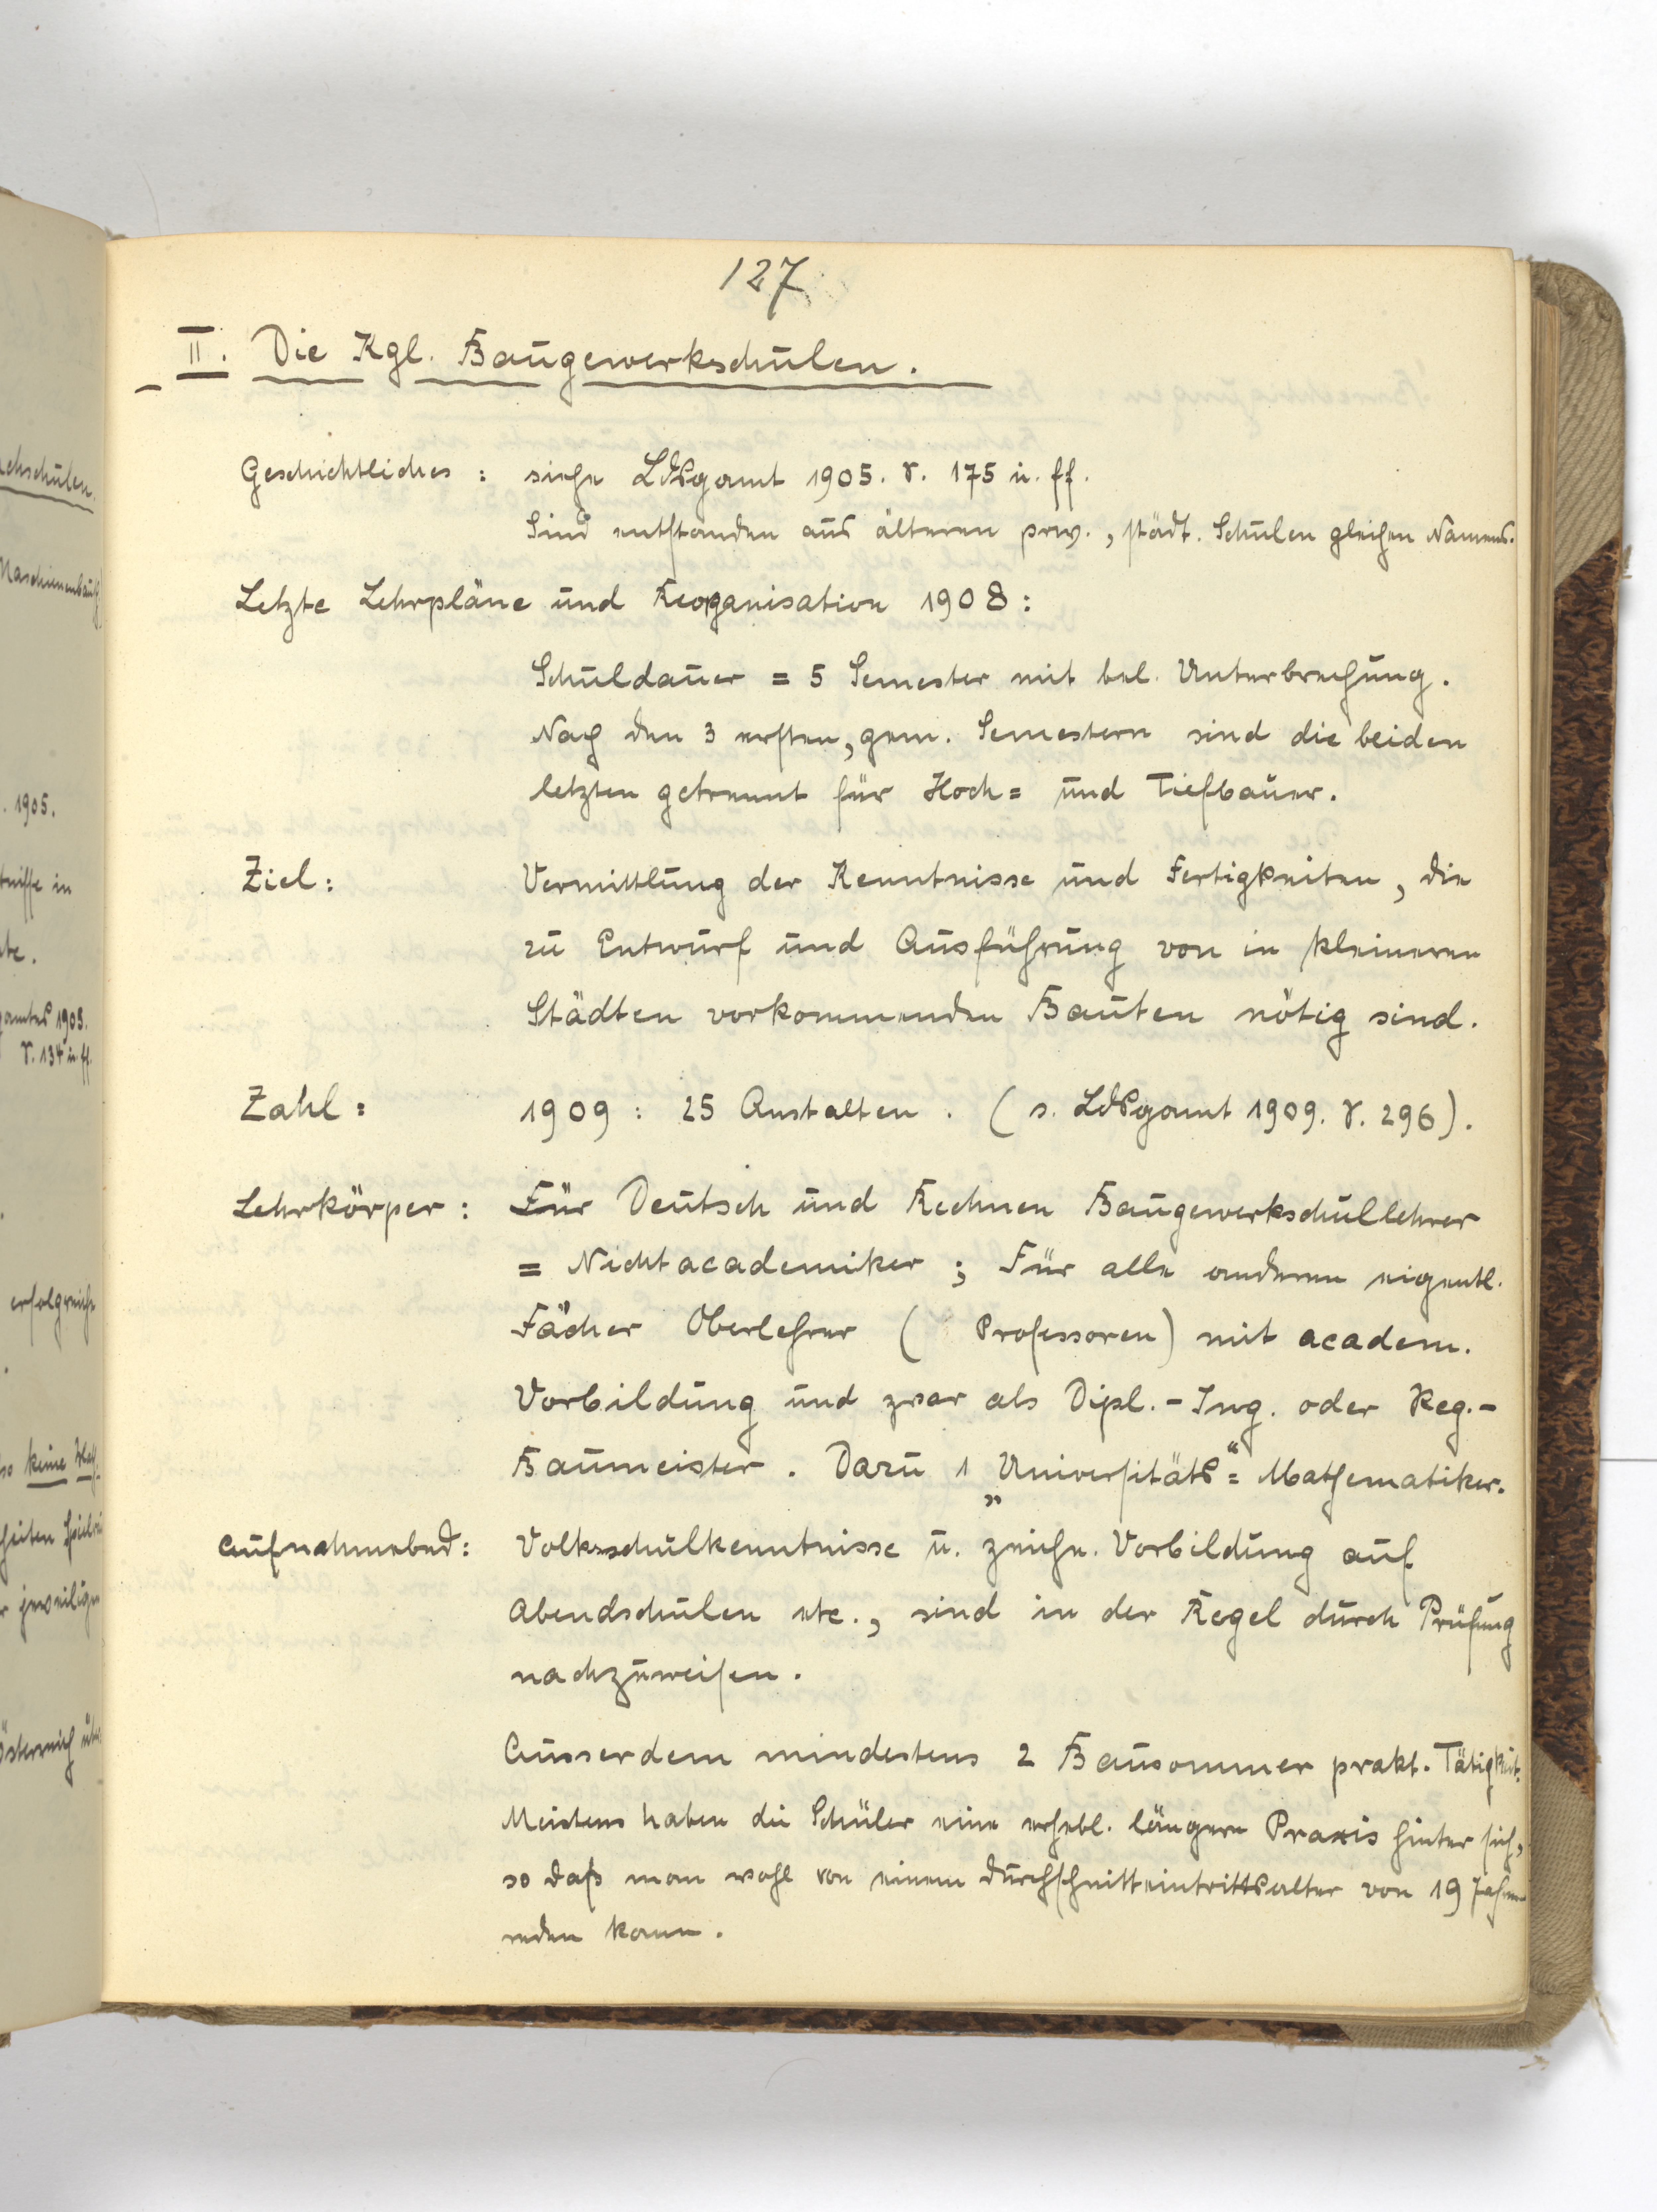 127
II. Die Kgl. Baugewerkschulen.
Geschichtliches : siehe LdsGamt 1905. S. 175 u. ff.
Sind entstanden aus älteren priv., städt. Schulen gleichen Namens.
Letzte Lehrpläne und Reorganisation 1908 :
Schuldauer = 5 Semester mit bel. Unterbrechung.
Nach den 3 ersten, gem. Semestern sind die beiden
letzten getrennt für Hoch= und Tiefbauer.
Ziel : Vermittlung der Kenntnisse und Fertigkeiten, die
zu Entwurf und Ausführung von in kleineren
Städten vorkommenden Bauten nötig sind.
Zahl : 1909 : 25 Anstalten. ( s. LdsGamt 1909. S. 296 ).
Lehrkörper : Für Deutsch und Rechnen Baugewerkschullehrer
= Nichtacademiker ; Für alle anderen eigentl.
Fächer Oberlehrer ( Professoren) mit academ.
Vorbildung und zwar als Dipl.-Ing. oder Reg.-
Baumeister. Dazu 1 „Universitäts“= Mathematiker.
Aufnahmebed : Volksschulkenntnisse u. zeichn. Vorbildung auf
Abendschulen etc., sind in der Regel durch Prüfung
nachzuweisen.
Ausserdem mindestens 2 Bausommer prakt. Tätigkeit.
Meistens haben die Schüler eine erhebl. längere Praxis hinter sich,
so daß man wohl von einem Durchschnitteintrittsalter von 19 Jahren
reden kann.